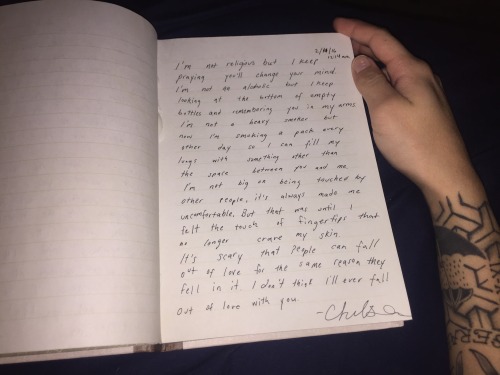 2/18/16
10:19 am
I'm not religious but I keep
praying you'll change your mind.
I'm not an alcoholic but I keep
looking at the bottom of empty
bottles and remembering you in my arms.
I'm not a heavy smoker but
now I'm smoking a pack every
other day so I can fill my
lungs with something other than
the space between you and me.
I'm not big on being touched by
other people, it's always made me
uncomfortable. But that was until I
felt the touch of fingertips that
no longer crave my skin.
It's scary that people can fall
out of love for the same reason they
fell in it. I don't think I'll ever fall
out of love with you.
-Chelsea